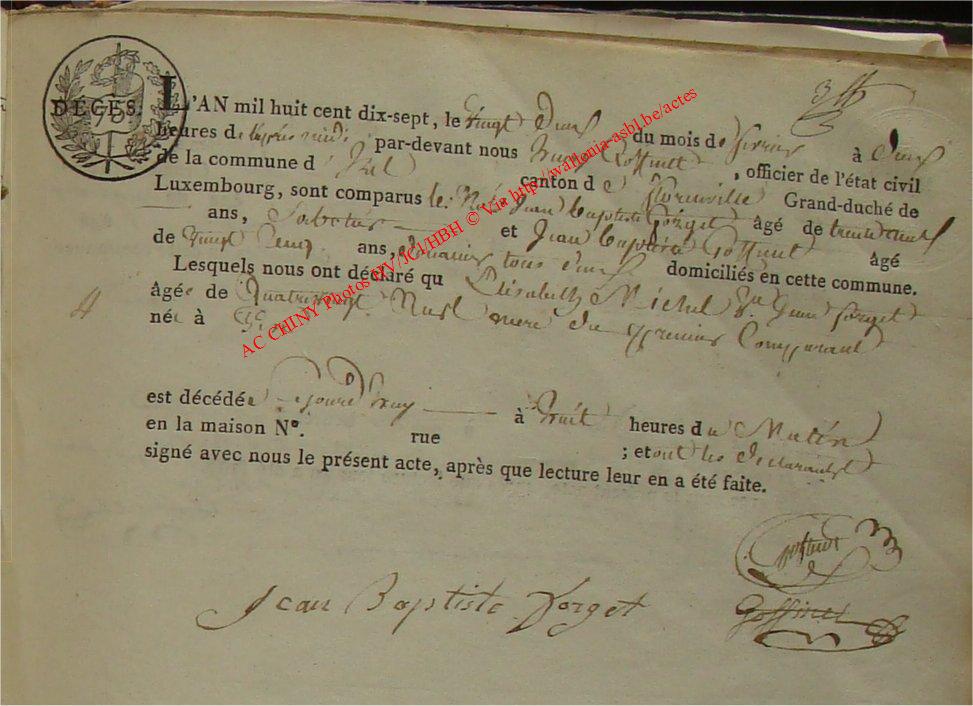 DÉCÈS.
L'AN mil huit cent dix-sept, le vingt deux du mois de fevrier à deux
heures de l'après midi par-devant nous Goffinet, officier de l'état civil
de la commune d' Izel canton de Florenville Grand-duché de
Luxembourg, sont comparus le Jean Baptiste Forget âgé de trente neuf
ans, et Jean Baptiste Goffinet âgé
de vingt cinq ans, tous deux domiciliés en cette commune.
Lesquels nous ont déclaré qu Elisabeth Michel Forget
âgée de Quatrevingt Neuf mere du premier Comparant
née à
4
est décédée aujourd'huy à huit heures du Matin
en la maison Nº. rue ; et ont les declarants
signé avec nous le présent acte, après que lecture leur en a été faite.
Goffinet
Jean Baptiste Forget
Goffinet
AC CHINY Photos HV/JCl/HBH © Via http://wallonia-asbl.be/actes